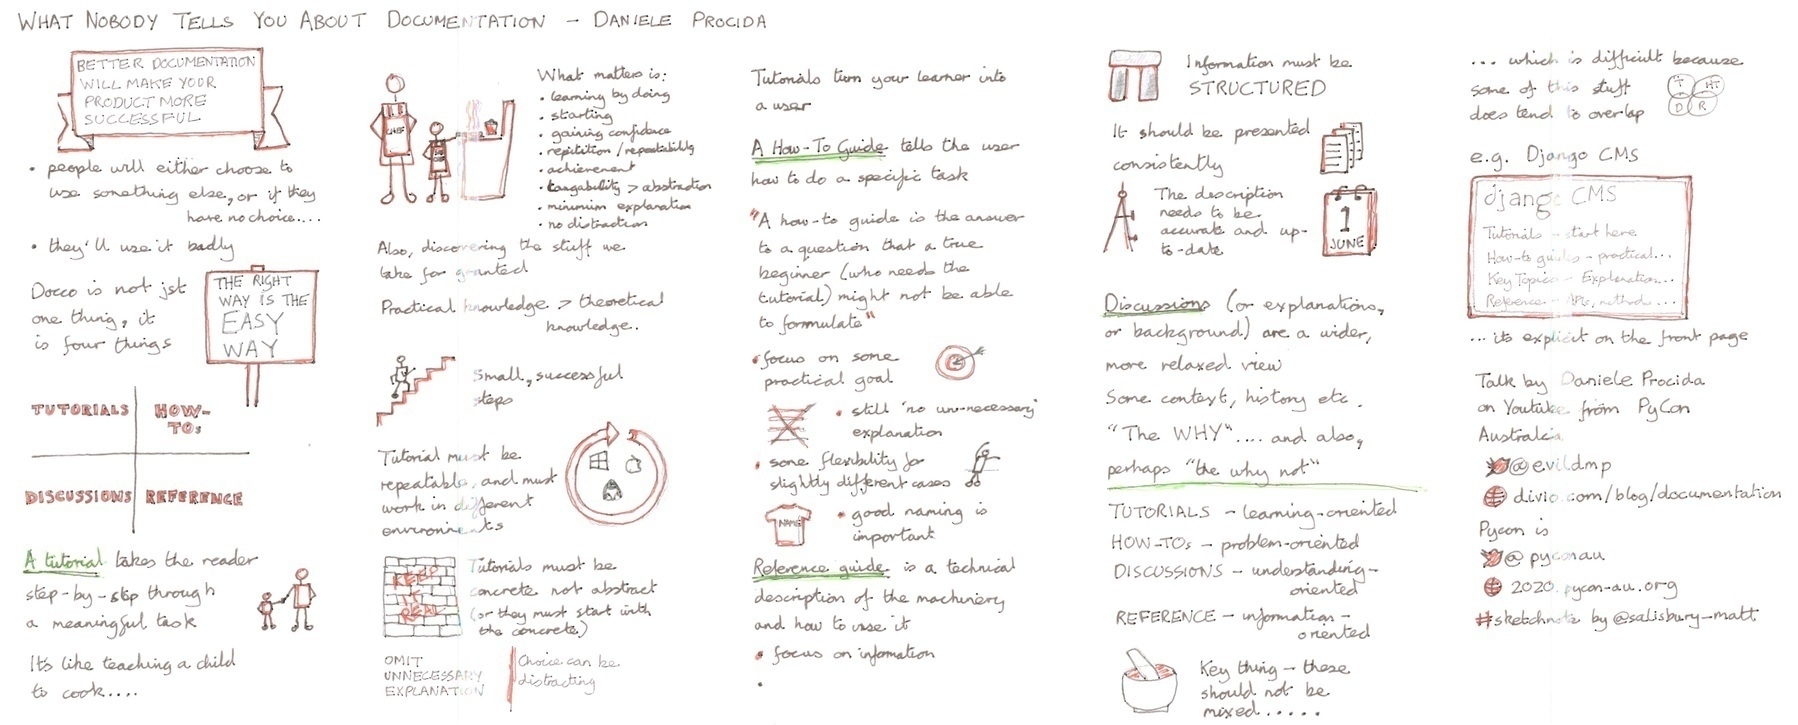 WHAT NOBODY TELLS YOU ABOUT DOCUMENTATION - DANIELE PROCIDA
BETTER DOCUMENTATION
WILL MAKE YOUR
PRODUCT MORE
SUCCESSFUL
• people will either choose to
use something else, or if they
have no choice....
• they'll use it badly
Docco is not jst
one thing, it
is four things
THE RIGHT
WAY IS THE
EASY
WAY
TUTORIALS
HOW-
TOs
DISCUSSIONS
REFERENCE
A tutorial takes the reader
step-by-step through
a meaningful task
It's like teaching a child
to cook....
CHEF
What matters is:
• learning by doing
• starting
• gaining confidence
• repitition / repeatability
• achievement
• tangability > abstraction
• minimum explanation
• no distraction
Also, discovering the stuff we
take for granted
Practical knowledge > theoretical
knowledge.
Small, successful
steps
Tutorial must be
repeatable, and must
work in different
environments
KEEP
IT
REAL
Tutorials must be
concrete not abstract
(or they must start with
the concrete)
OMIT
UNNECESSARY
EXPLANATION
Choice can be
distracting
Tutorials turn your learner into
a user
A How-To Guide tells the user
how to do a specific task
"A how-to guide is the answer
to a question that a true
beginner (who needs the
tutorial) might not be able
to formulate"
• focus on some
practical goal
• still 'no un-necessary'
explanation
• some flexibility for
slightly different cases
NAME
• good naming is
important
Reference guide is a technical
description of the machinery
and how to use it
• focus on infomation
•
Information must be
STRUCTURED
It should be presented
consistently
The description
needs to be
accurate and up-
to-date.
1
JUNE
Discussions (or explanations,
or background) are a wider,
more relaxed view
Some context, history etc.
"The WHY".... and also,
perhaps "the why not"
TUTORIALS - learning-oriented
HOW-TOs - problem-oriented
DISCUSSIONS - understanding-
oriented
REFERENCE - information-
oriented
Key thing - these
should not be
mixed.....
... which is difficult because
some of this stuff
does tend to overlap
T HT
D R
e.g. Django CMS
django CMS
Tutorials - start here
How-to guides - practical...
Key Topics - Explanation...
Reference - APIs, method ...
... its explicit on the front page
Talk by Daniele Procida
on Youtube from PyCon
Australia
@evildmp
divio.com/blog/documentation
Pycon is
@pyconau
2020.pycon-au.org
#sketchnote by @salisbury-matt